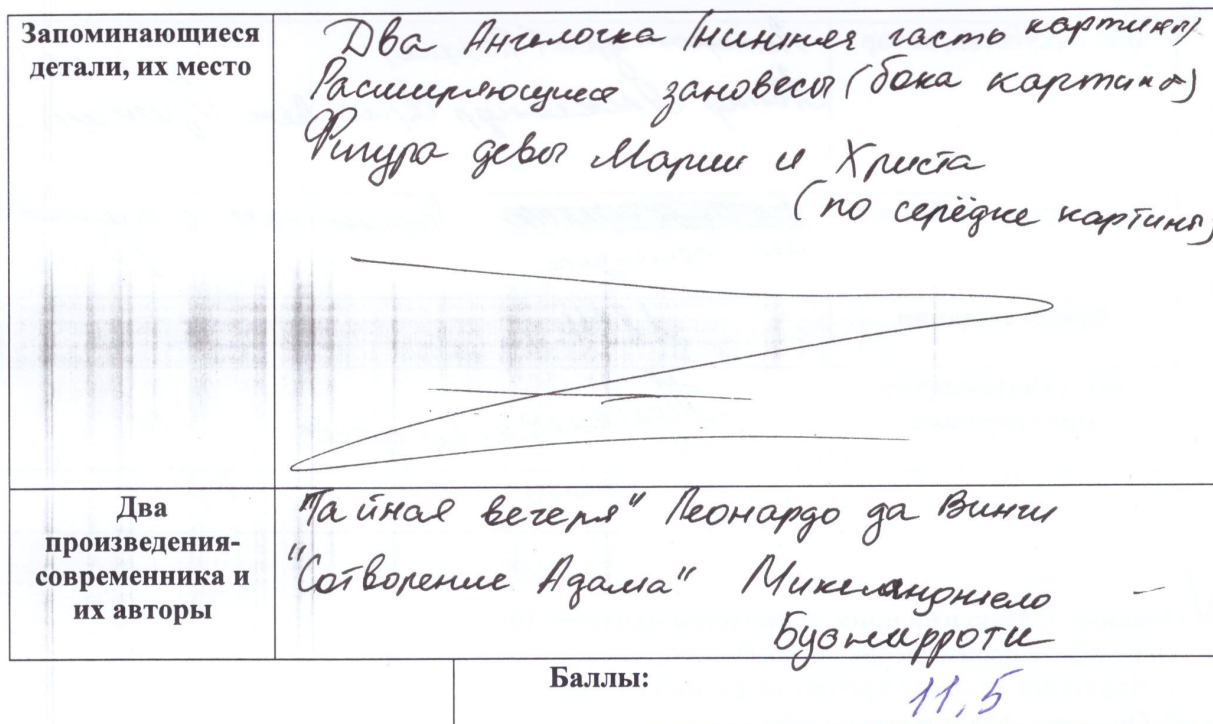 Запоминающиеся
детали, их место
Два Ангелочка (нижняя часть картины)
Расширяющиеся зановесы (бока картины)
Фигура девы Марии и Христа
(по серёдке картины)
Два
произведения-
современника и
их авторы
"Тайная вечеря" Леонардо да Винчи
"Сотворение Адама" Микеланджело –
Буонарроти
Баллы:
11,5